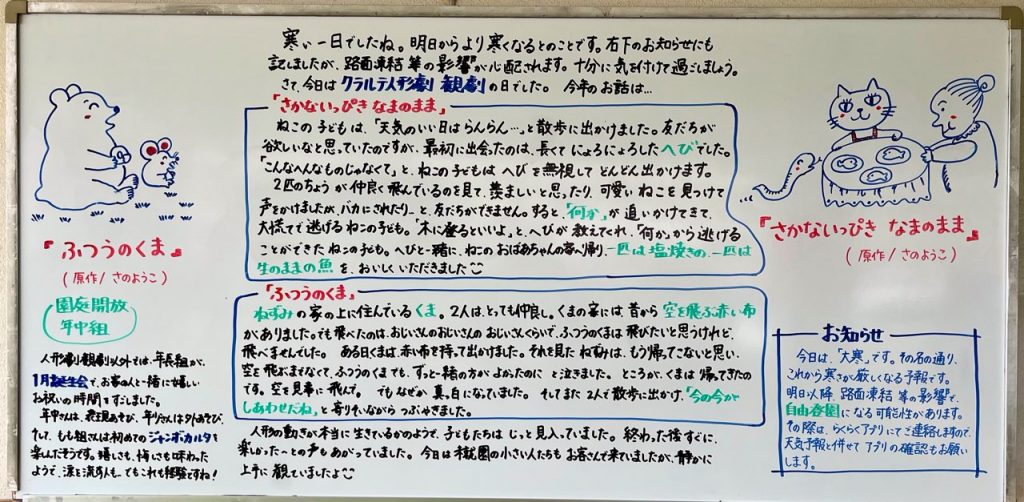 寒い一日でしたね。明日からより寒くなるとのことです。右下のお知らせにも
記しましたが、路面凍結等の影響が心配されます。十分に気を付けて過ごしましょう。
さて、今日はクラルテ人形劇 観劇の日でした。今年のお話は…
『さかないっぴき なまのまま』
ねこの子どもは、「天気のいい日はらんらん…」と散歩に出かけました。友だちが
欲しいなと思っていたのですが、最初に出会ったのは、長くてにょろにょろしたへびでした。
「こんなへんなものじゃなくて」と、ねこの子どもはへびを無視してどんどん出かけます。
2匹のちょうが仲良く飛んでいるのを見て、羨ましいと思ったり、可愛いねこを見つけて
声をかけましたが、バカにされたり…と、友だちができません。すると、「何か」が追いかけてきて、
大慌てで逃げるねこの子ども。「木に登るといいよ」と、へびが教えてくれ、「何か」から逃げる
ことができたねこの子ども。へびと一緒に、ねこのおばあちゃんの家へ帰り、一匹は塩焼きの、一匹は
生のままの魚を、おいしくいただきました
『ふつうのくま』
ねずみの家の上に住んでいるくま。2人は、とっても仲良し。くまの家には昔から空を飛ぶ赤い布
がありました。でも飛べたのは、おじいさんのおじいさんのおじいさんくらいで、ふつうのくまは飛びたいと思うけれど、
飛べませんでした。ある日くまは赤い布を持って出かけました。それを見たねずみは、もう帰ってこないと思い、
空を飛ぶまでなくて、ふつうのくまでも、ずっと一緒の方がよかったのにと泣きました。ところが、くまは帰ってきたの
です。空を見事に飛んで。でもなぜか真っ白になっていました。そしてまた2人で散歩に出かけ、「今の今が
しあわせだね」と寄りそいながらつぶやきました。
人形の動きが本当に生きているかのようで、子どもたちはじっと見入っていました。終わった後すぐに、
楽しかったーとの声もあがっていました。今日は橘園の小さい人たちもお客さんで来ていましたが、静かに
上手に観ていましたよ
『ふつうのくま』
(原作/さのようこ)
園庭開放
年中組
人形劇観劇以外では、年長組が、
1月誕生会で、お客の人と一緒に嬉しい
お祝いの時間をすごしました。
年中さんは、表現あそび、年少さんは外あそび、
そして、もも組さんは初めてのジャンボカルタを
楽しんだそうです。嬉しいも、悔しいも味わった
ようで、涙を流す人も…でもこれも経験ですね!
『さかないっぴき なまのまま』
(原作/さのようこ)
お知らせ
今日は、「大寒」です。その名の通り、
これから寒さが厳しくなる予報です。
明日以降、路面凍結等の影響で、
自由登園になる可能性があります。
その際は、らくらくアプリにてご連絡しますので、
天気予報と併せてアプリの確認もお願い
します。